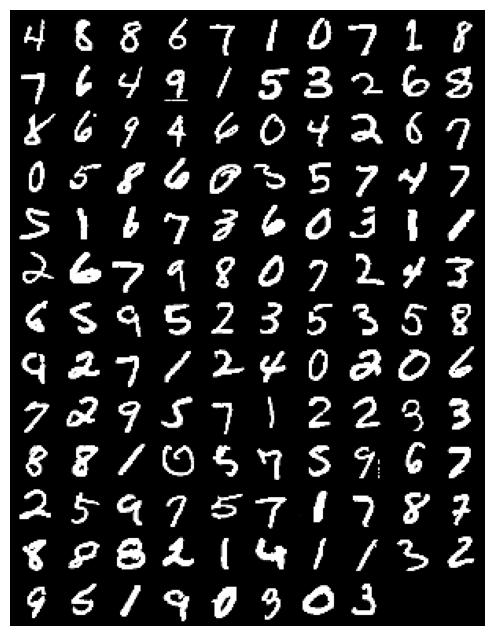 4 8 8 6 7 1 0 7 1 8
7 6 4 9 1 5 3 2 6 8
8 6 9 4 6 0 4 2 6 7
0 5 8 6 0 3 5 7 4 7
5 1 6 7 3 6 0 3 1 1
2 6 7 9 8 0 7 2 4 3
6 5 9 5 2 3 5 3 5 8
9 2 7 1 2 4 0 2 0 6
7 2 9 5 7 1 2 2 3 3
8 8 1 0 5 7 5 9 6 7
2 5 9 7 5 7 1 7 8 7
8 8 8 2 1 4 1 1 3 2
9 5 1 9 0 3 0 3